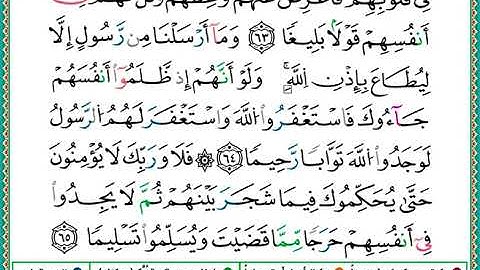 فِي قُلُوبِهِمْ فَأَعْرِضْ عَنْهُمْ وَعِظْهُمْ وَقُل لَّهُمْ فِيٓ
أَنفُسِهِمْ قَوْلَۢا بَلِيغٗا ٦٣ وَمَآ أَرْسَلْنَا مِن رَّسُولٍ إِلَّا
لِيُطَاعَ بِإِذْنِ ٱللَّهِۚ وَلَوْ أَنَّهُمْ إِذ ظَّلَمُوٓاْ أَنفُسَهُمْ
جَآءُوكَ فَٱسْتَغْفَرُواْ ٱللَّهَ وَٱسْتَغْفَرَ لَهُمُ ٱلرَّسُولُ
لَوَجَدُواْ ٱللَّهَ تَوَّابٗا رَّحِيمٗا ٦٤ ۞ فَلَا وَرَبِّكَ لَا يُؤْمِنُونَ
حَتَّىٰ يُحَكِّمُوكَ فِيمَا شَجَرَ بَيْنَهُمْ ثُمَّ لَا يَجِدُواْ
فِيٓ أَنفُسِهِمْ حَرَجٗا مِّمَّا قَضَيْتَ وَيُسَلِّمُواْ تَسْلِيمٗا ٦٥